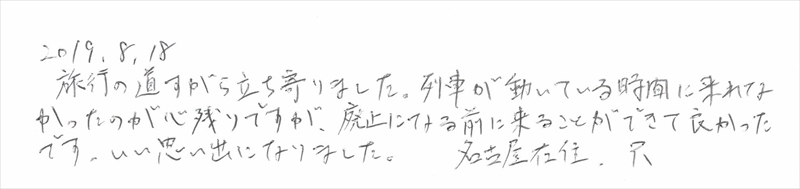 2019.8.18
旅行の道すがら立ち寄りました。列車が動いている時間に来れてな
かったのが心残りですが、廃止になる前に来ることができて良かった
です。いい思い出になりました。 名古屋在住. 穴